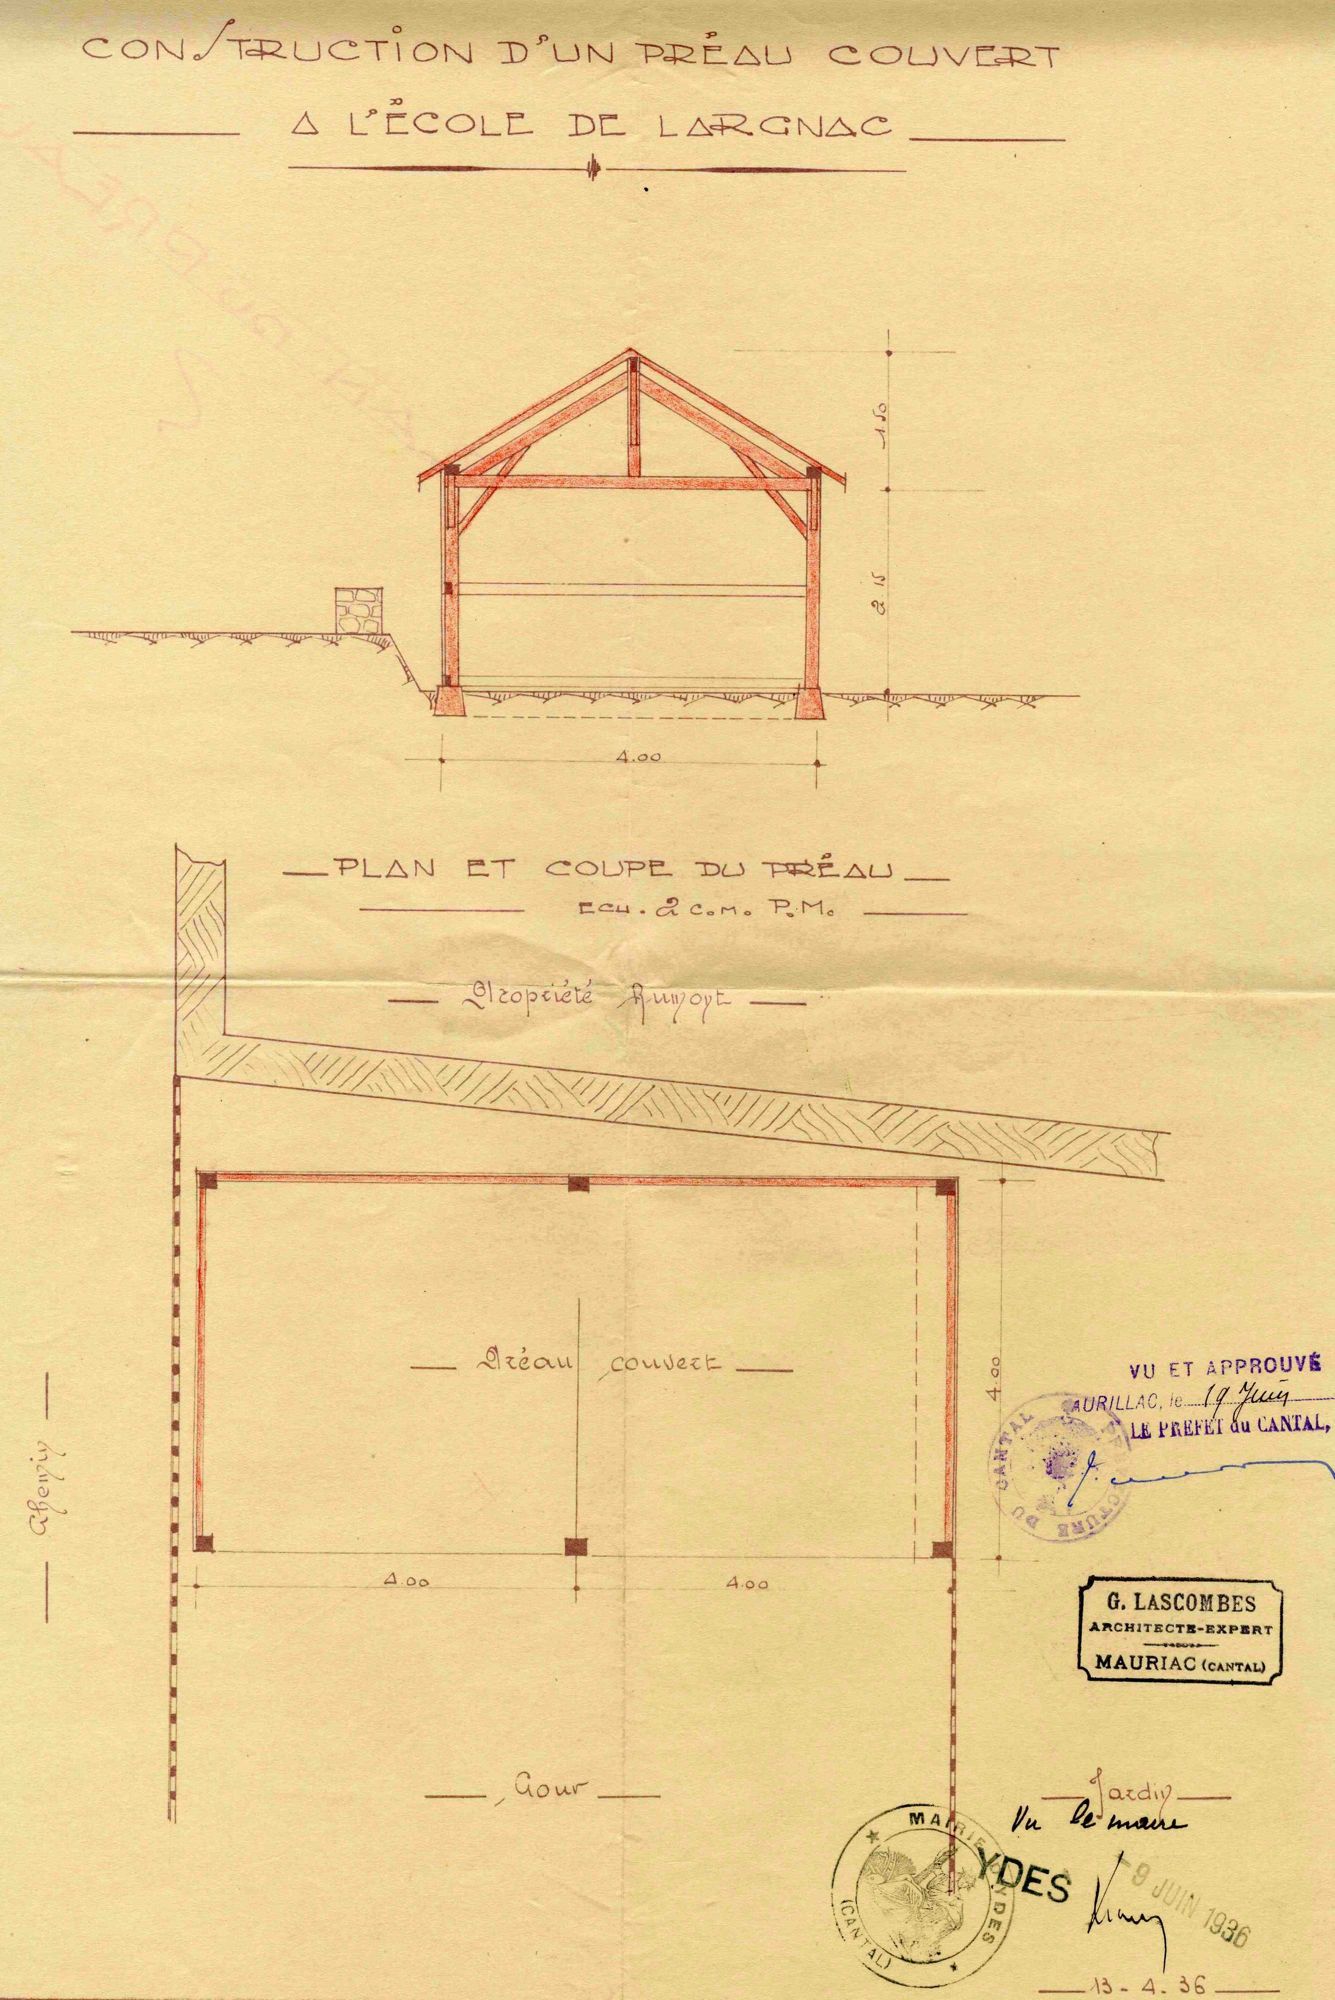 CONSTRUCTION D'UN PRÉAU COUVERT
A L'ÉCOLE DE LARGNAC
1.50
2.15
4.00
PLAN ET COUPE DU PRÉAU
ECH. 2 C.M. P.M.
Propriété Rumont
Préau couvert
4.00
Chemin
4.00
4.00
VU ET APPROUVÉ
AURILLAC, le 19 Juin
LE PREFET du CANTAL,
PREFECTURE DU CANTAL
G. LASCOMBES
ARCHITECTE-EXPERT
MAURIAC (CANTAL)
Cour
Jardin
Vu le maire
MAIRIE D'YDES
(CANTAL)
YDES
-9 JUIN 1936
13-4-36